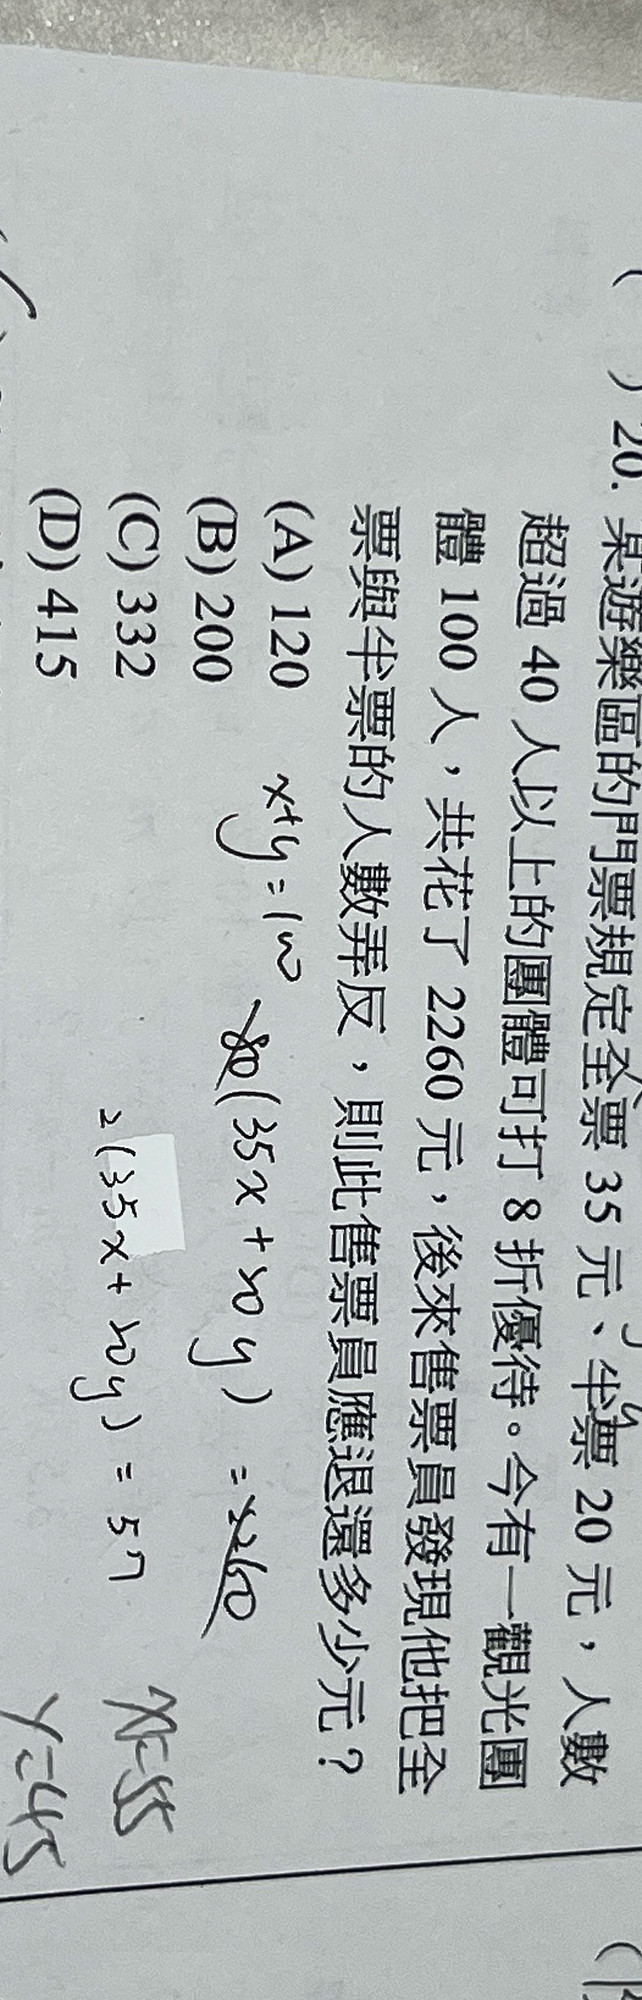 ( ) 20. 某遊樂區的門票規定全票 35 元、半票 20 元，人數
超過 40 人以上的團體可打 8 折優待。今有一觀光團
體 100 人，共花了 2260 元，後來售票員發現他把全
票與半票的人數弄反，則此售票員應退還多少元？
(A) 120
(B) 200
(C) 332
(D) 415
x+y=100
80(35x+20y) =2260
2(35x+20y) = 57
x=55
y=45